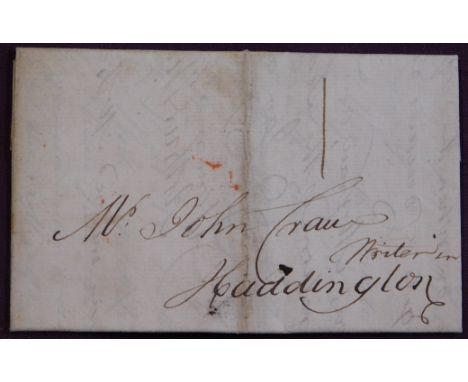 1
Mr. John Craw
Writer in
Haddington